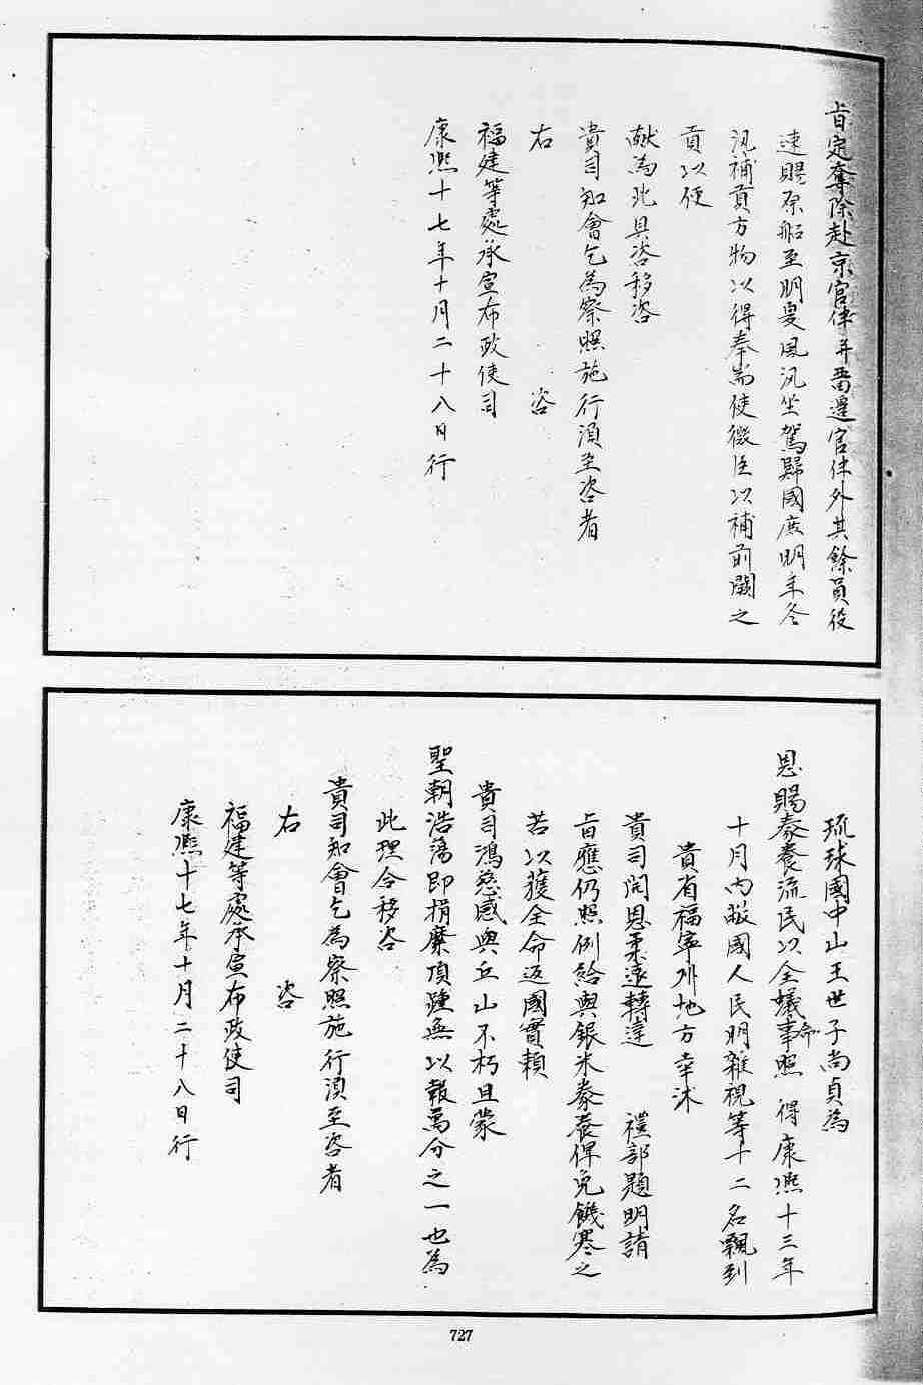 旨定奪除赴京官伴并畱邊官伴外其餘員役
速賜原船至明夏風汛坐駕歸國庶明年冬
汛補貢方物以得奉耑使微臣以補前闕之
貢以便
獻為此具咨移咨
貴司知會乞為察照施行須至咨者
右 咨
福建等處承宣布政使司
康熙十七年十月二十八日行
琉球國中山王世子尚貞為
恩賜豢養流民以全蟻命事照得康熙十三年
十月內敝國人民明雜視等十二名飄到
貴省福寧州地方幸沐
貴司開恩柔遠轉達 禮部題明請
旨應仍照例給與銀米豢養俾免饑寒之
苦以獲全命返國實賴
貴司鴻慈感與丘山不朽且蒙
聖朝浩蕩即捐糜頂踵無以報萬分之一也為
此理合移咨
貴司知會乞為察照施行須至咨者
右 咨
福建等處承宣布政使司
康熙十七年十月二十八日行
727